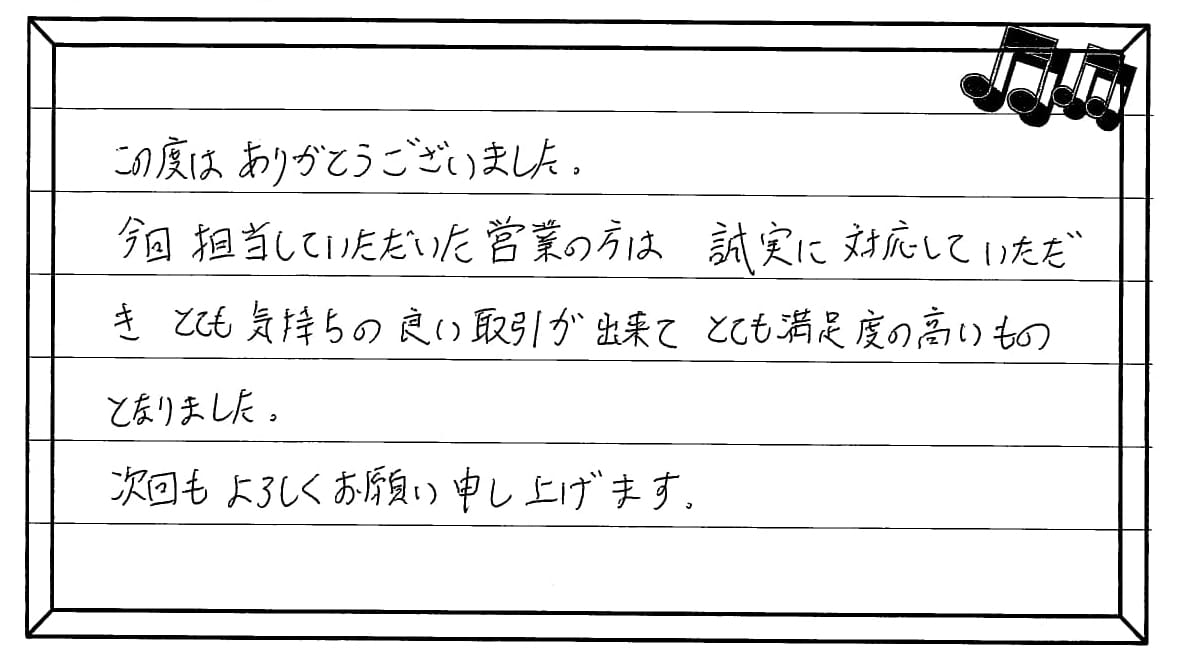 この度は ありがとうございました。
今回 担当していただいた 営業の方は 誠実に 対応して いただだ
き とても 気持ちの 良い 取引が 出来て とても満足度の高いもの
となりました。
次回も よろしく お願い 申し 上げます。